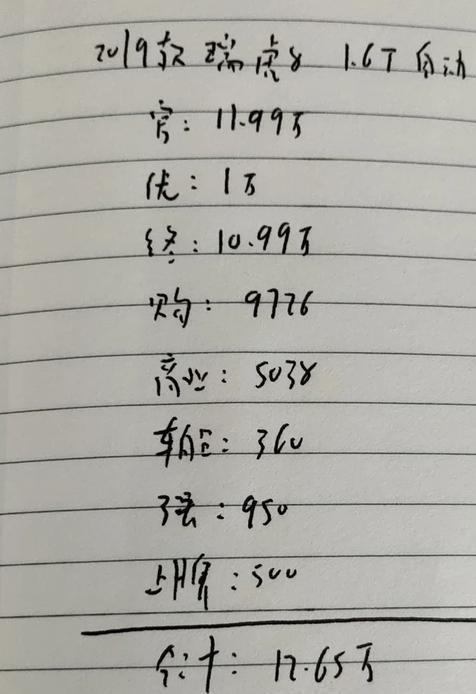 2019款 瑞虎8 1.6T 自动
官: 11.99万
优: 1万
终: 10.99万
购: 9726
商业: 5038
车船: 360
强: 950
上牌: 500
合计: 12.65万